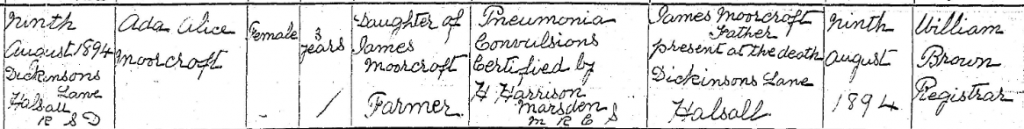 Ninth
August 1894
Dickinsons
Lane
Halsall
R S D
Ada Alice
Moorcroft
Female
3
years
Daughter of
James
Moorcroft
Farmer
Pneumonia
Convulsions
Certified by
H Harrison
Marsden
M R C S
James Moorcroft
Father
present at the death
Dickinsons Lane
Halsall
Ninth
August
1894
William
Brown
Registrar